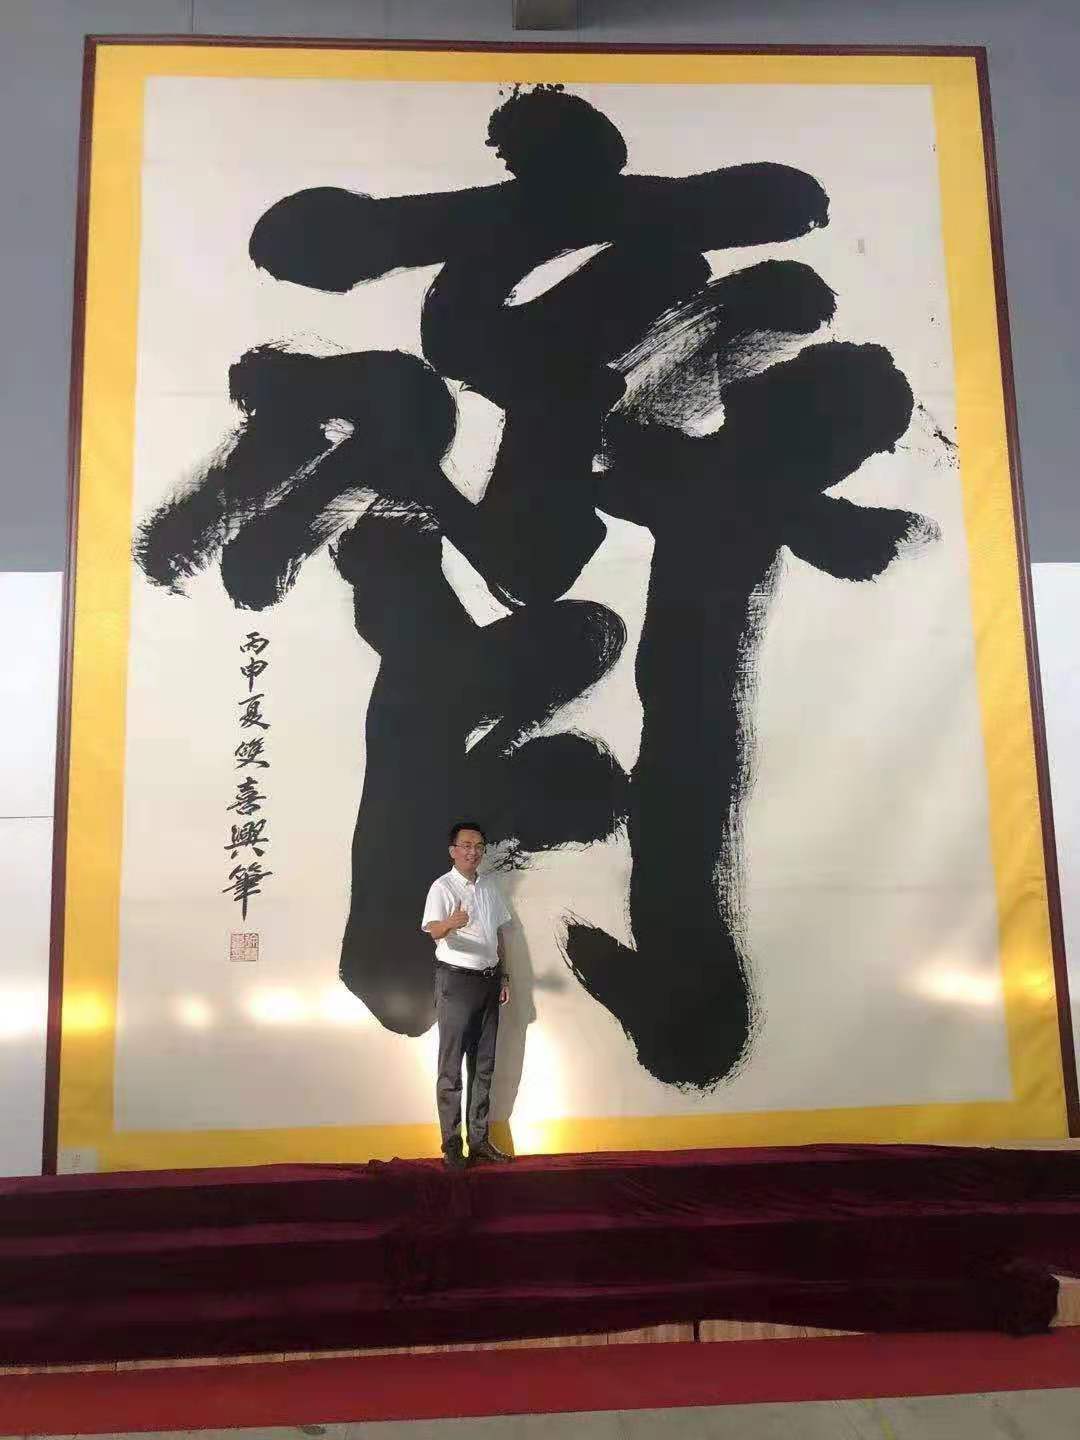 齊
丙申夏雙喜興筆